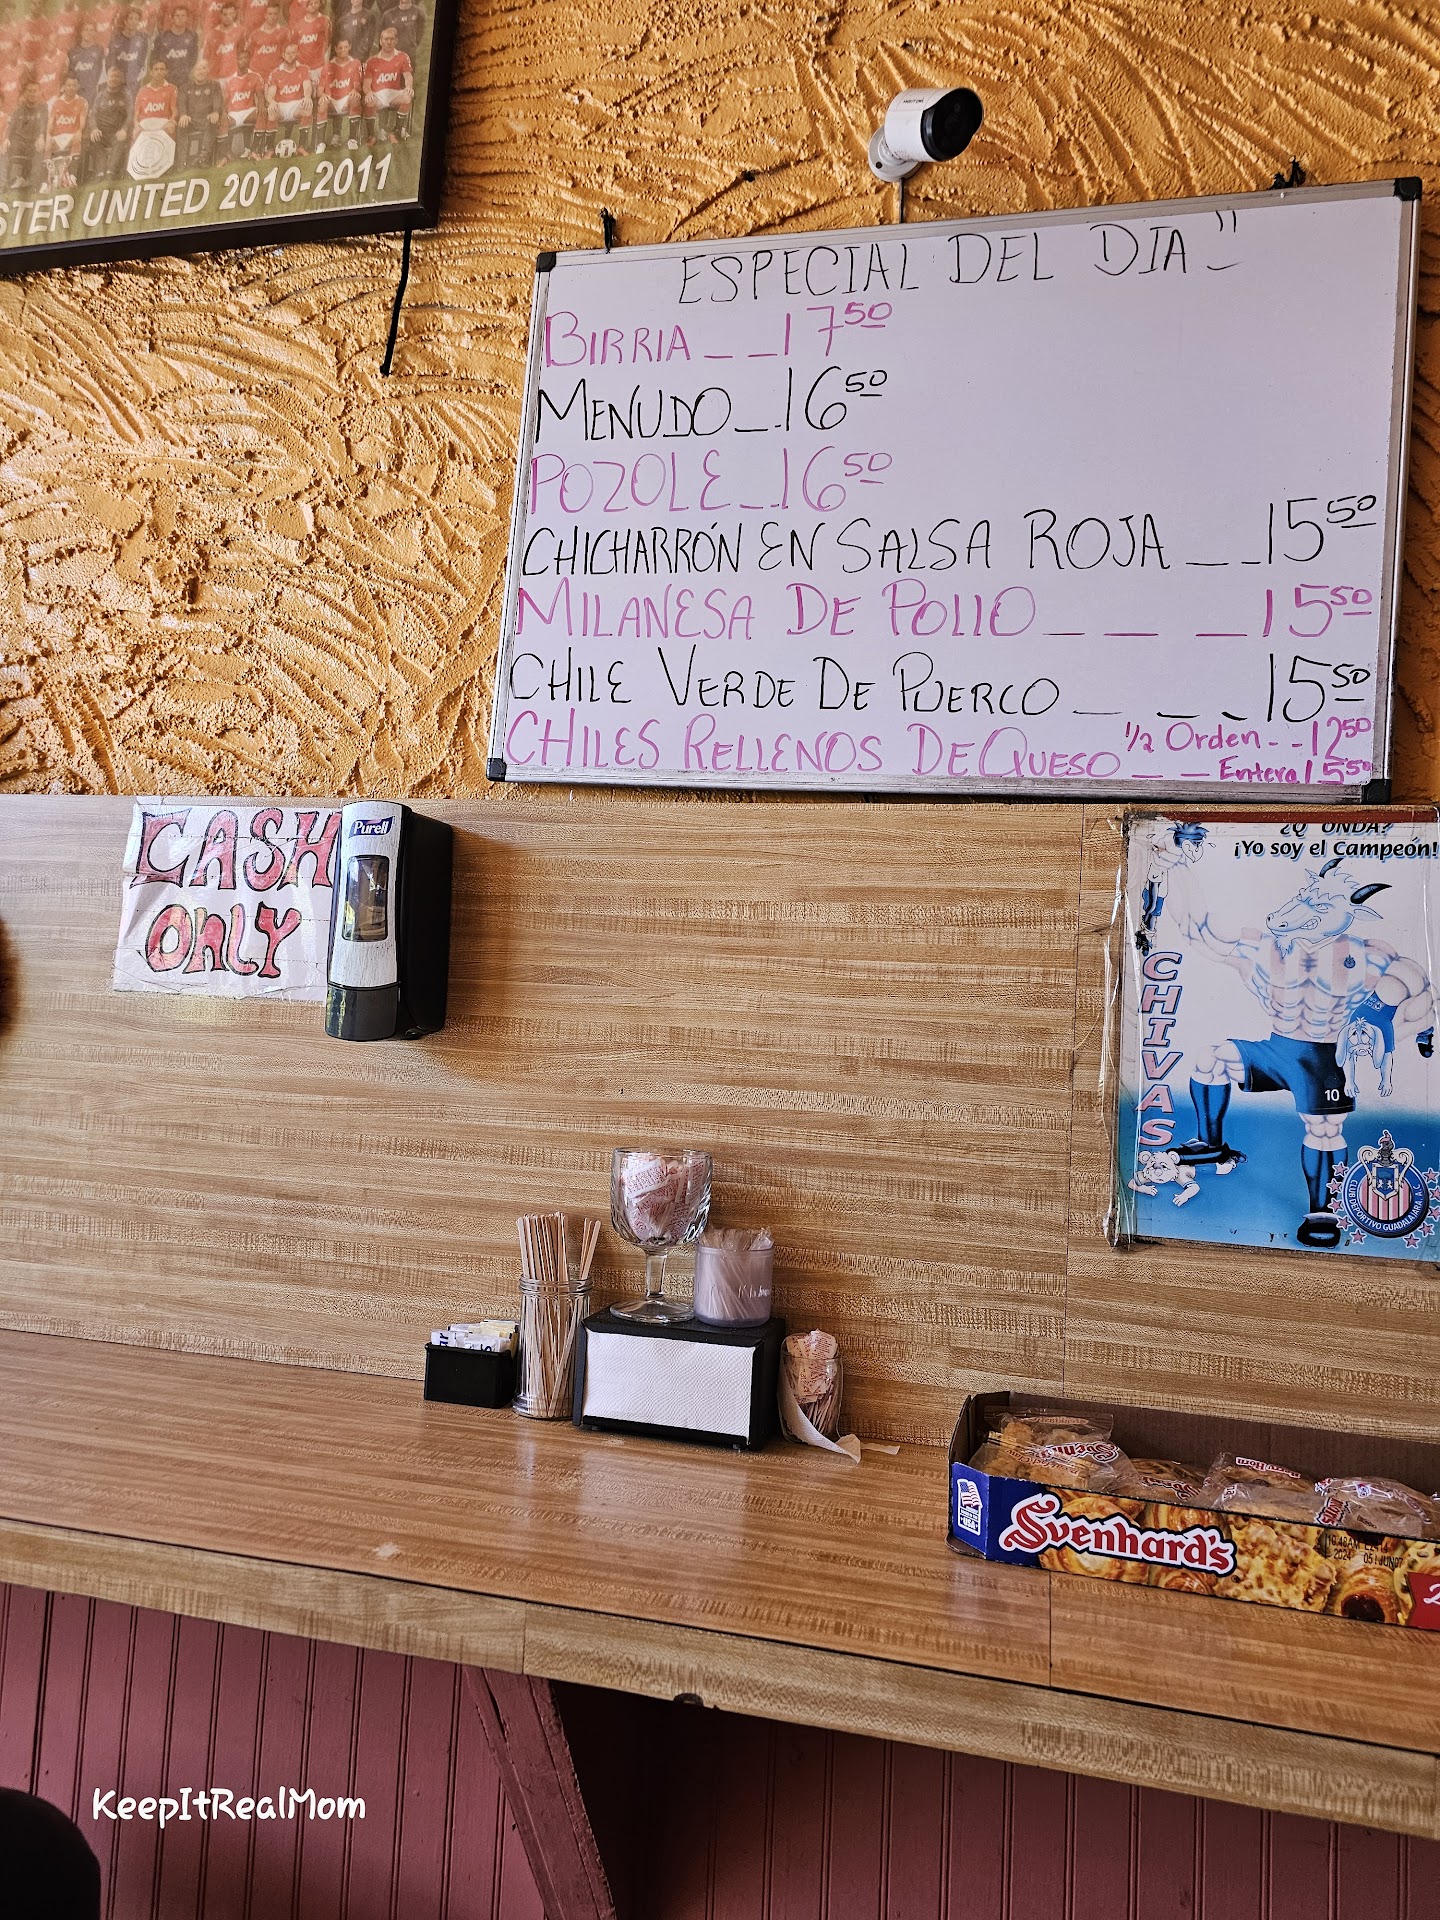 AON AON AON
AON AON AON AON AON
STER UNITED 2010-2011
ESPECIAL DEL DIA"
BIRRIA _ _ 17 50
MENUDO _ . 16 50
POZOLE _ . 16 50
CHICHARRÓN EN SALSA ROJA _ _ 15 50
MILANESA DE POLLO _ _ _ 15 50
CHILE VERDE DE PUERCO _ _ _ 15 50
CHILES RELLENOS DE QUESO 1/2 Orden - - 12 50
_ _ Entera 15 50
CASH
ONLY
Purell
¿Q ONDA?
¡Yo soy el Campeón!
CHIVAS
10
CLUB DEPORTIVO GUADALAJARA A.C.
Svenhard's
USA
10:48AM
2024 05/JUN07
2
KeepItRealMom